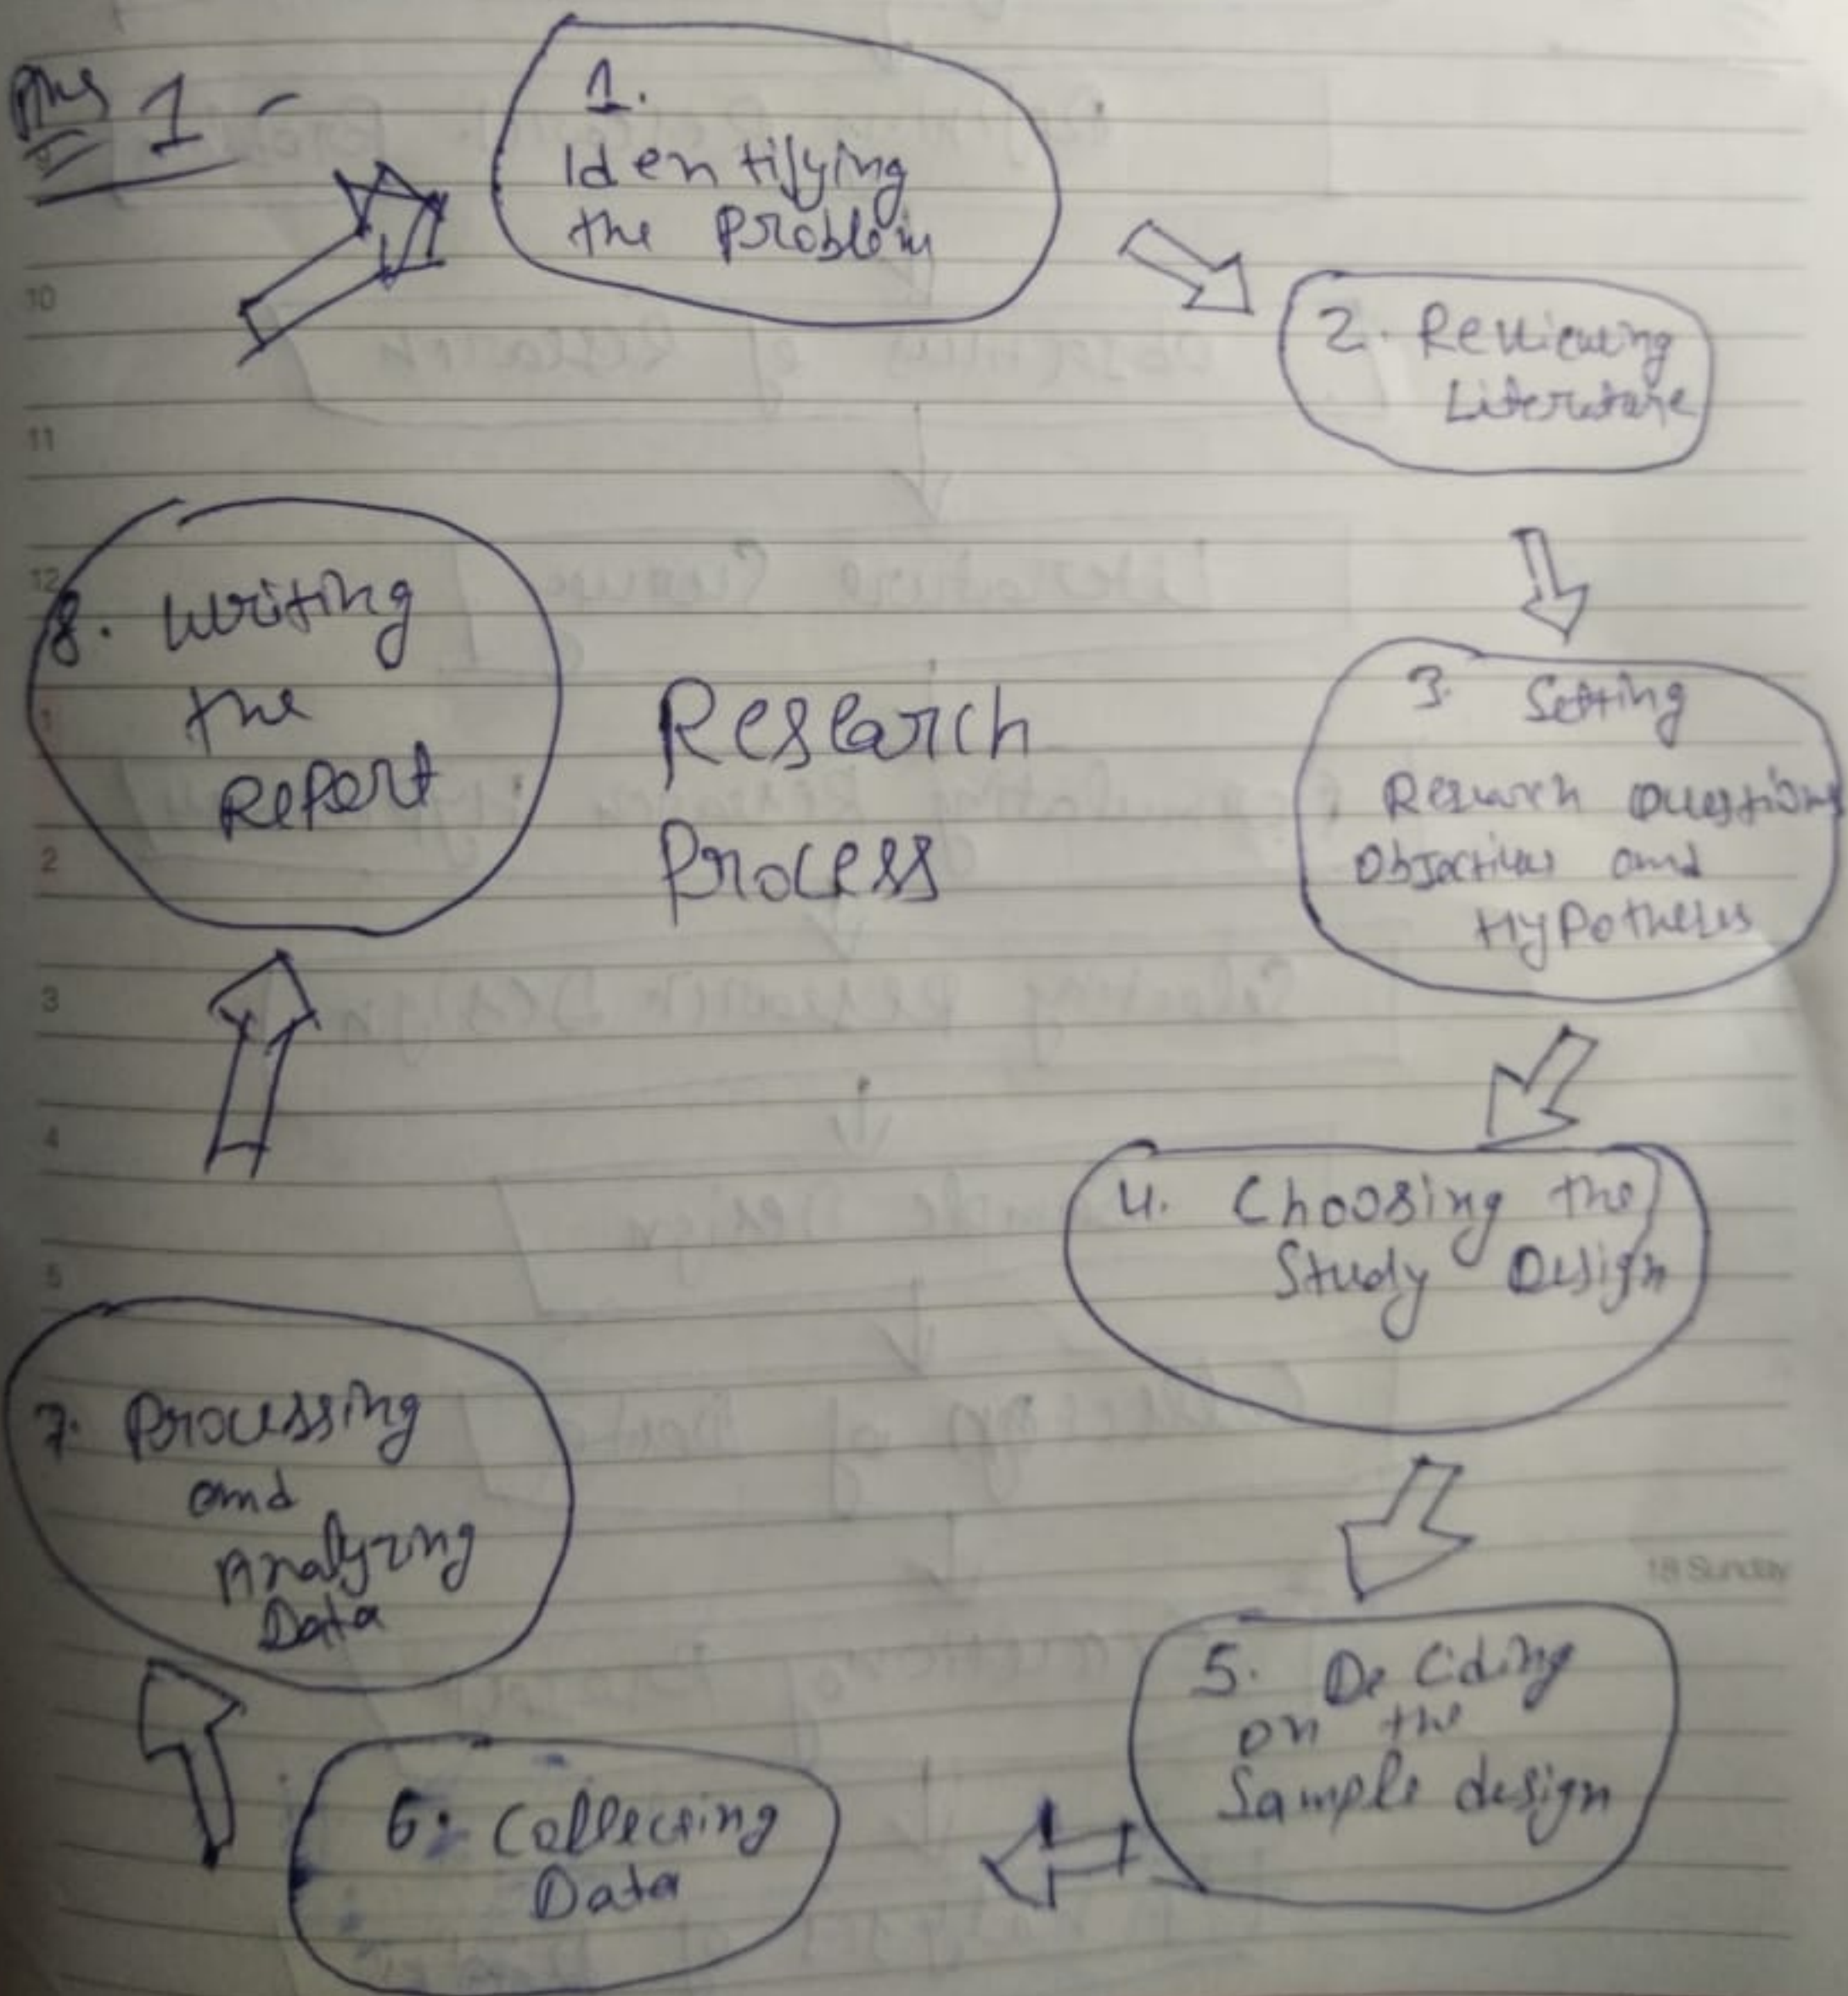 Ans 1 -
1.
Identifying
the Problem
2. Reviewing
Literature
3. Setting
Research Questions
Objectives and
Hypotheses
4. Choosing the
Study Design
5. Deciding
on the
Sample design
6. Collecting
Data
7. Processing
and
Analyzing
Data
8. Writing
the
Report
Research
Process
10
11
12
1
2
3
4
5
18 Sunday